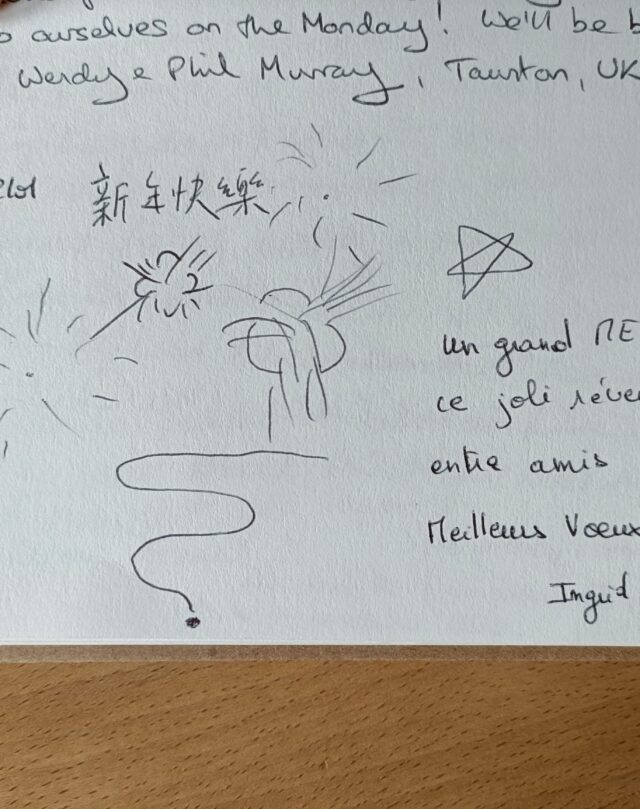 ourselves on the Monday! We'll be
Wendy & Phil Murray, Taunton, UK
新年快樂
un grand ME
ce joli réve
entre amis
Meilleurs Voeux
Ingrid